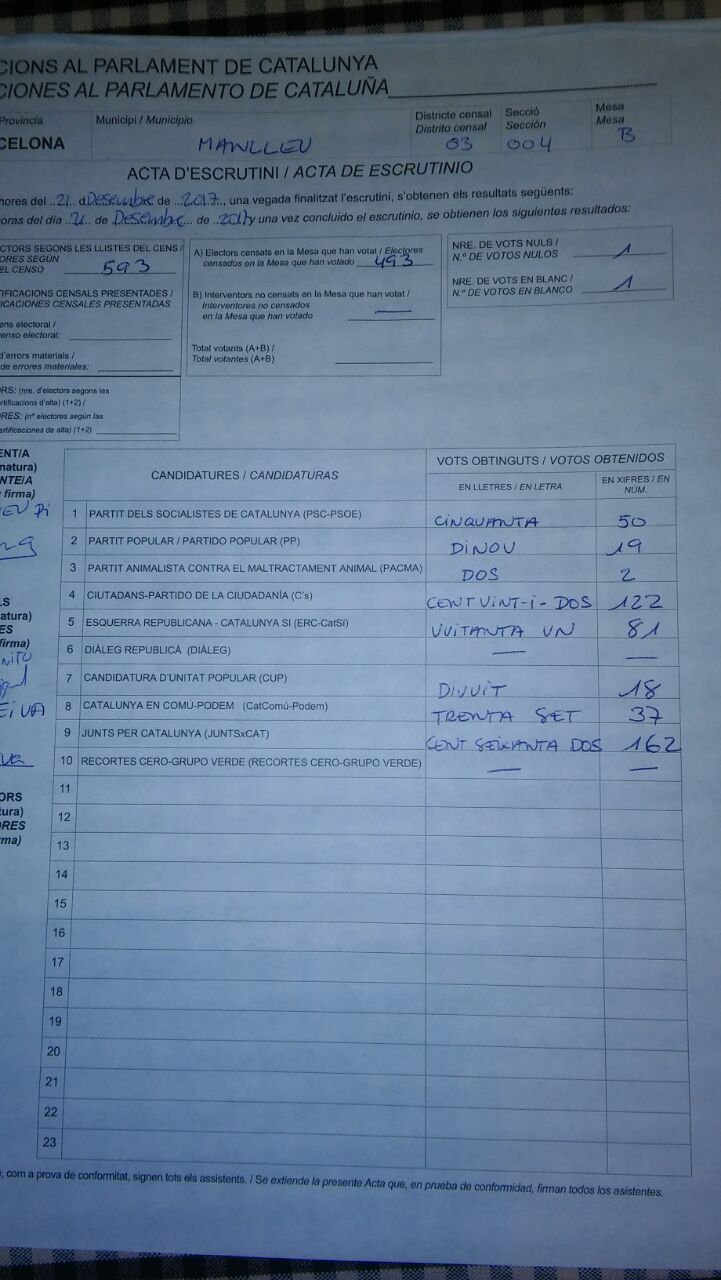 CIONS AL PARLAMENT DE CATALUNYA
CIONES AL PARLAMENTO DE CATALUÑA
Provincia
CELONA
Municipi / Municipio
MANLLEU
Districte censal
Distrito censal
03
Secció
Sección
004
Mesa
Mesa
B
ACTA D'ESCRUTINI / ACTA DE ESCRUTINIO
hores del ..21.. d Desembre de ..2017.., una vegada finalitzat l'escrutini, s'obtenen els resultats següents:
oras del día ..21.. de Desembre... de ..2017 y una vez concluido el escrutinio, se obtienen los siguientes resultados:
CTORS SEGONS LES LLISTES DEL CENS /
ORES SEGÚN
EL CENSO 593
TIFICACIONS CENSALS PRESENTADES /
ICACIONES CENSALES PRESENTADAS
ens electoral /
enso electoral:
d'errors materials /
de errores materiales:
ORS: (nre. d'electors segons les
ertificacions d'alta) (1+2) /
ORES: (nº electores según las
ertificaciones de alta) (1+2)
A) Electors censats en la Mesa que han votat / Electores
censados en la Mesa que han votado 493
B) Interventors no censats en la Mesa que han votat /
Interventores no censados
en la Mesa que han votado —
Total votants (A+B) /
Total votantes (A+B)
NRE. DE VOTS NULS /
N.º DE VOTOS NULOS 1
NRE. DE VOTS EN BLANC /
N.º DE VOTOS EN BLANCO 1
ENT/A
natura)
NTE/A
y firma)
LS
natura)
ES
firma)
EIVA
ORS
tura)
ORES
rma)
CANDIDATURES / CANDIDATURAS
VOTS OBTINGUTS / VOTOS OBTENIDOS
EN LLETRES / EN LETRA
EN XIFRES / EN NÚM.
1 PARTIT DELS SOCIALISTES DE CATALUNYA (PSC-PSOE) CINQUANTA 50
2 PARTIT POPULAR / PARTIDO POPULAR (PP) DINOU 19
3 PARTIT ANIMALISTA CONTRA EL MALTRACTAMENT ANIMAL (PACMA) DOS 2
4 CIUTADANS-PARTIDO DE LA CIUDADANÍA (C's) CENT VINT-I-DOS 122
5 ESQUERRA REPUBLICANA - CATALUNYA SI (ERC-CatSí) VUITANTA UN 81
6 DIÀLEG REPUBLICÀ (DIÀLEG) — —
7 CANDIDATURA D'UNITAT POPULAR (CUP) DIVUIT 18
8 CATALUNYA EN COMÚ-PODEM (CatComú-Podem) TRENTA SET 37
9 JUNTS PER CATALUNYA (JUNTSxCAT) CENT SEIXANTA DOS 162
10 RECORTES CERO-GRUPO VERDE (RECORTES CERO-GRUPO VERDE) — —
11
12
13
14
15
16
17
18
19
20
21
22
23
, com a prova de conformitat, signen tots els assistents. / Se extiende la presente Acta que, en prueba de conformidad, firman todos los asistentes.